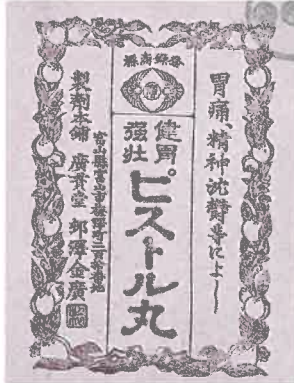 登錄商標
胃痛、精神沈鬱等によし
健胃
強壯
ピストル丸
富山縣富山市梅澤町二百番地
製劑本舖 廣貫堂 邨澤金廣